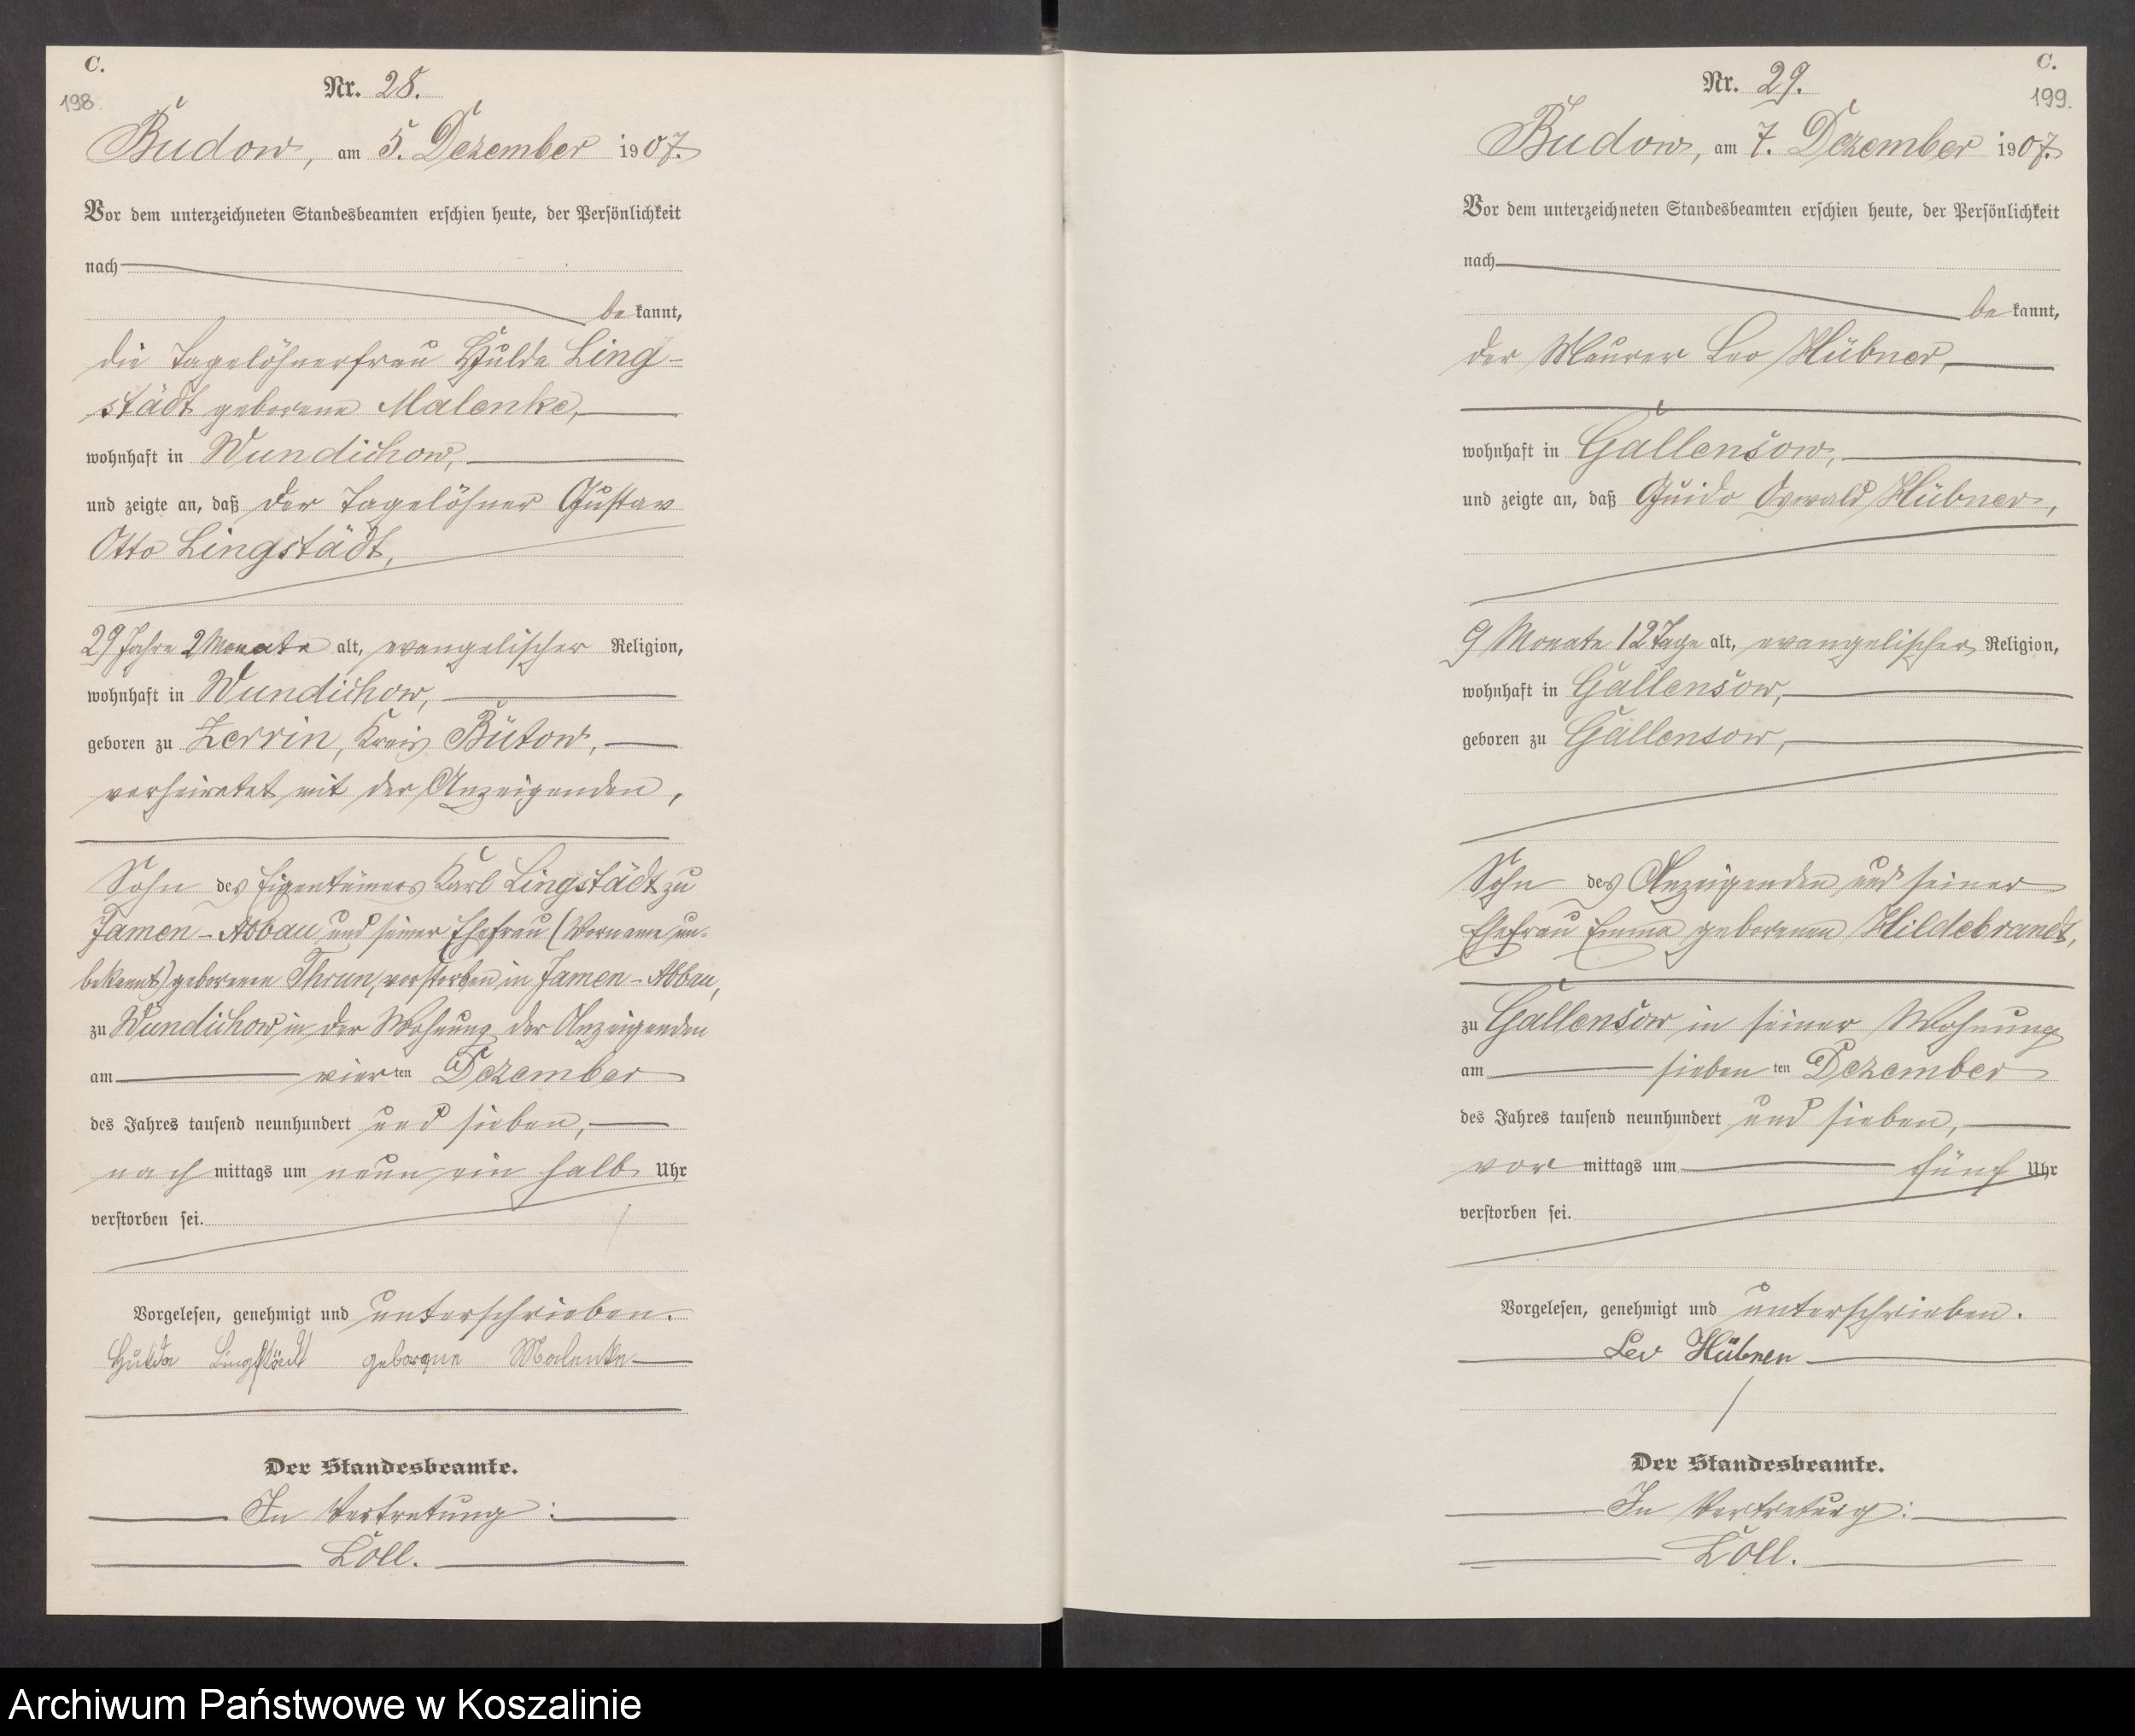 C.
198.
Nr. 28.
Budow, am 5. Dezember 1907.
Vor dem unterzeichneten Standesbeamten erschien heute, der Persönlichkeit
nach
be kannt,
die Tagelöhnerfrau Hulda Ling-
städt geborene Malenke,
wohnhaft in Wundichow,
und zeigte an, daß der Tagelöhner Gustav
Otto Lingstädt,
29 Jahre 2 Monate alt, evangelischer Religion,
wohnhaft in Wundichow,
geboren zu Zerrin, Kreis Bütow,
verheiratet mit der Anzeigenden,
Sohn des Eigentümers Karl Lingstädt zu
Jamen-Abbau und seiner Ehefrau (Vorname un-
bekannt) geborenen Thrun, verstorben in Jamen-Abbau,
zu Wundichow in der Wohnung der Anzeigenden
am vier ten Dezember
des Jahres tausend neunhundert und sieben,
nach mittags um neun ein halb Uhr
verstorben sei.
Vorgelesen, genehmigt und unterschrieben.
Hulda Lingstädt geborene Malenke
Der Standesbeamte.
In Vertretung:
Löll.
C.
199.
Nr. 29.
Budow, am 7. Dezember 1907.
Vor dem unterzeichneten Standesbeamten erschien heute, der Persönlichkeit
nach
be kannt,
der Maurer Leo Hübner,
wohnhaft in Gallensow,
und zeigte an, daß Guido Oswald Hübner,
9 Monate 12 Tage alt, evangelischer Religion,
wohnhaft in Gallensow,
geboren zu Gallensow,
Sohn des Anzeigenden und seiner
Ehefrau Emma geborenen Hildebrandt,
zu Gallensow in seiner Wohnung
am sieben ten Dezember
des Jahres tausend neunhundert und sieben,
vor mittags um fünf Uhr
verstorben sei.
Vorgelesen, genehmigt und unterschrieben.
Leo Hübner
Der Standesbeamte.
In Vertretung:
Löll.
Archiwum Państwowe w Koszalinie